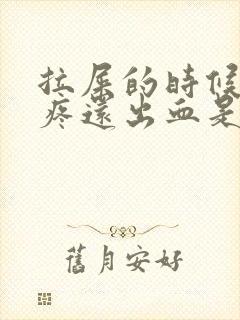 拉屎的时候
疼還出血是
舊月安好